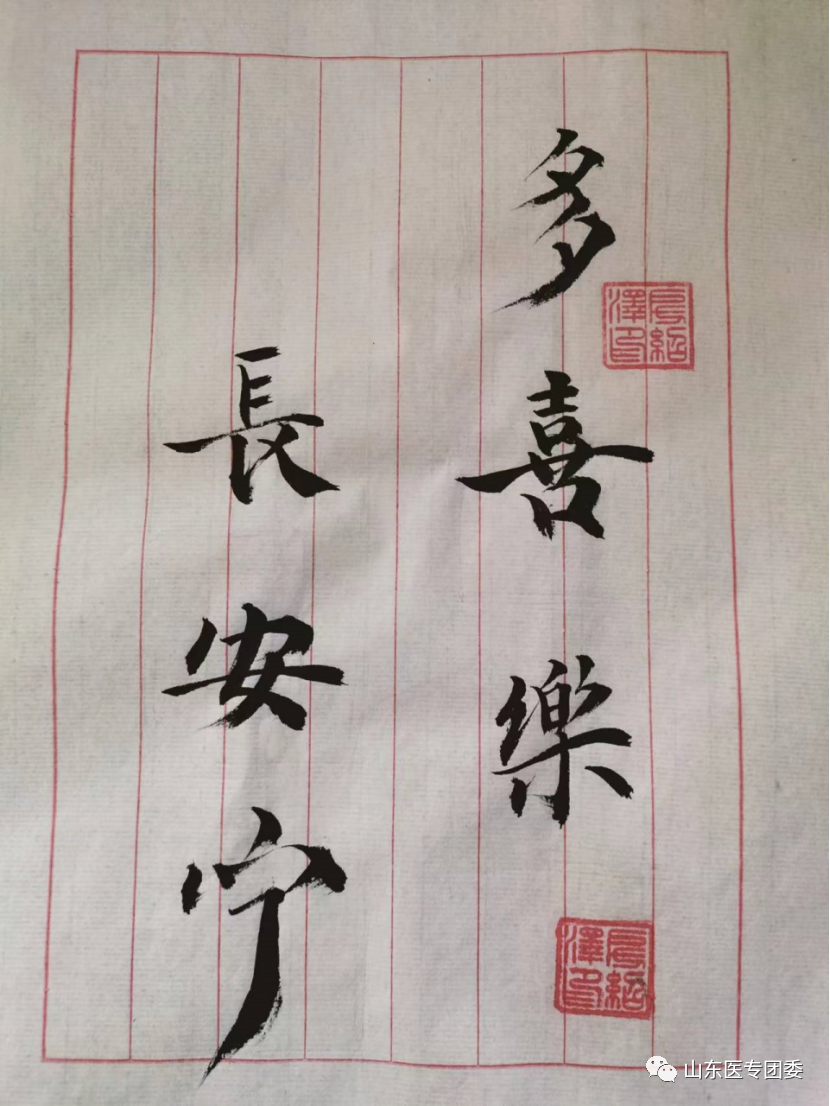 多喜樂
長安宁
山东医专团委